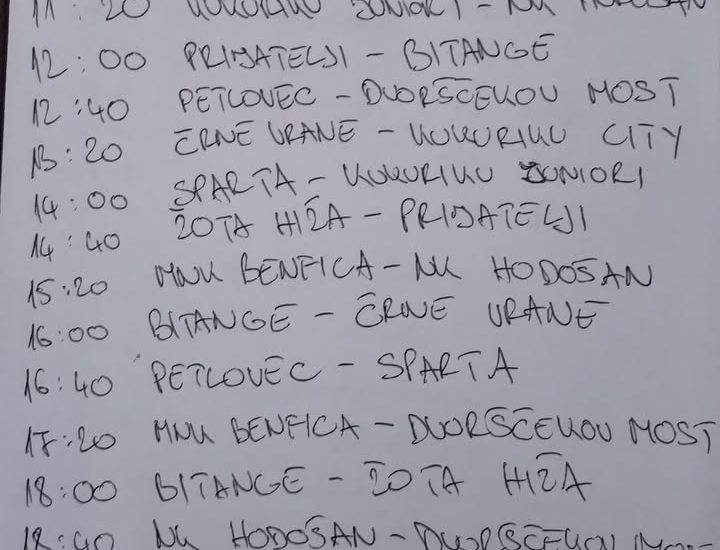 11:20 KUKURIKU JUNIORI - NK HODOŠAN
12:00 PRIJATELJI - BITANGE
12:40 PETLOVEC - DVORŠČEKOV MOST
13:20 ČRNE VRANE - KUKURIKU CITY
14:00 SPARTA - KUKURIKU JUNIORI
14:40 ŽOTA HIŽA - PRIJATELJI
15:20 MNK BENFICA - NK HODOŠAN
16:00 BITANGE - ČRNE VRANE
16:40 PETLOVEC - SPARTA
17:20 MNK BENFICA - DVORŠČEKOV MOST
18:00 BITANGE - ŽOTA HIŽA
18:40 NK HODOŠAN - DVORŠČEKOV MOST